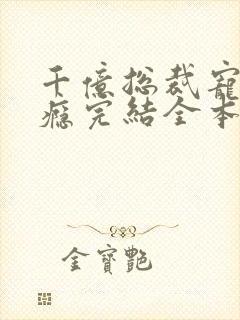 千億总裁寵
癮完結全本
金寶艷